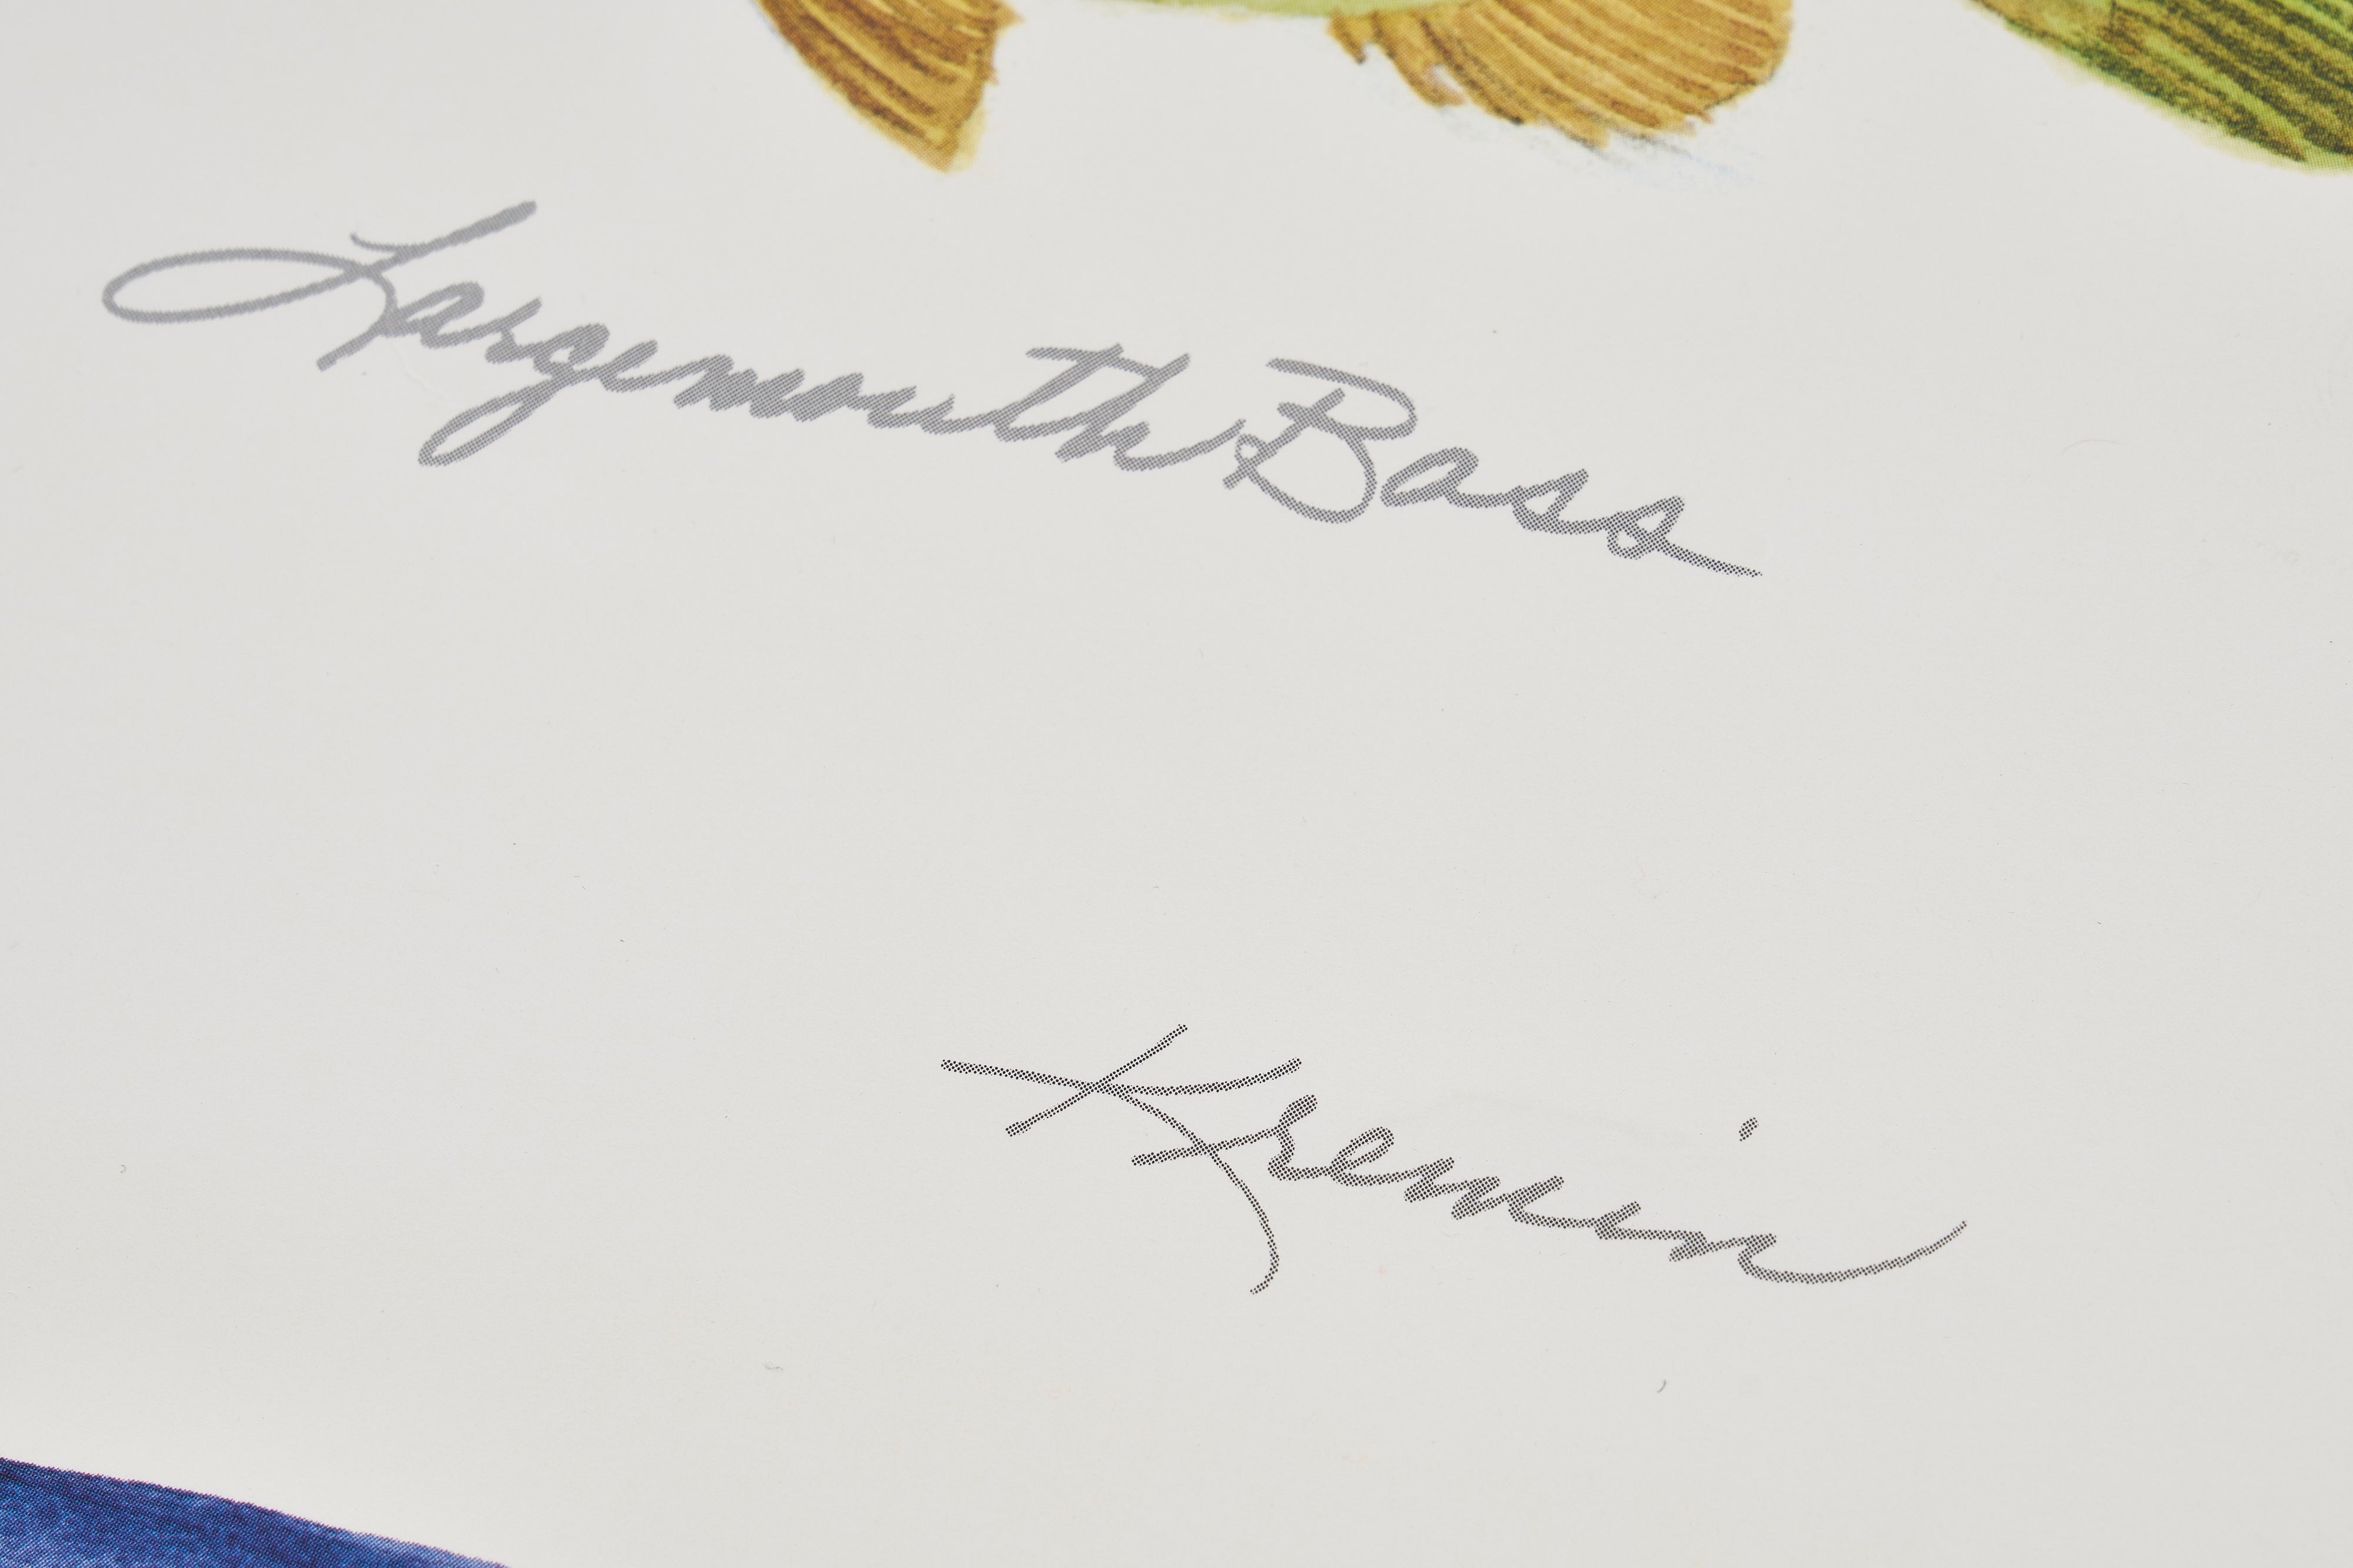 Largemouth Bass
Kremin